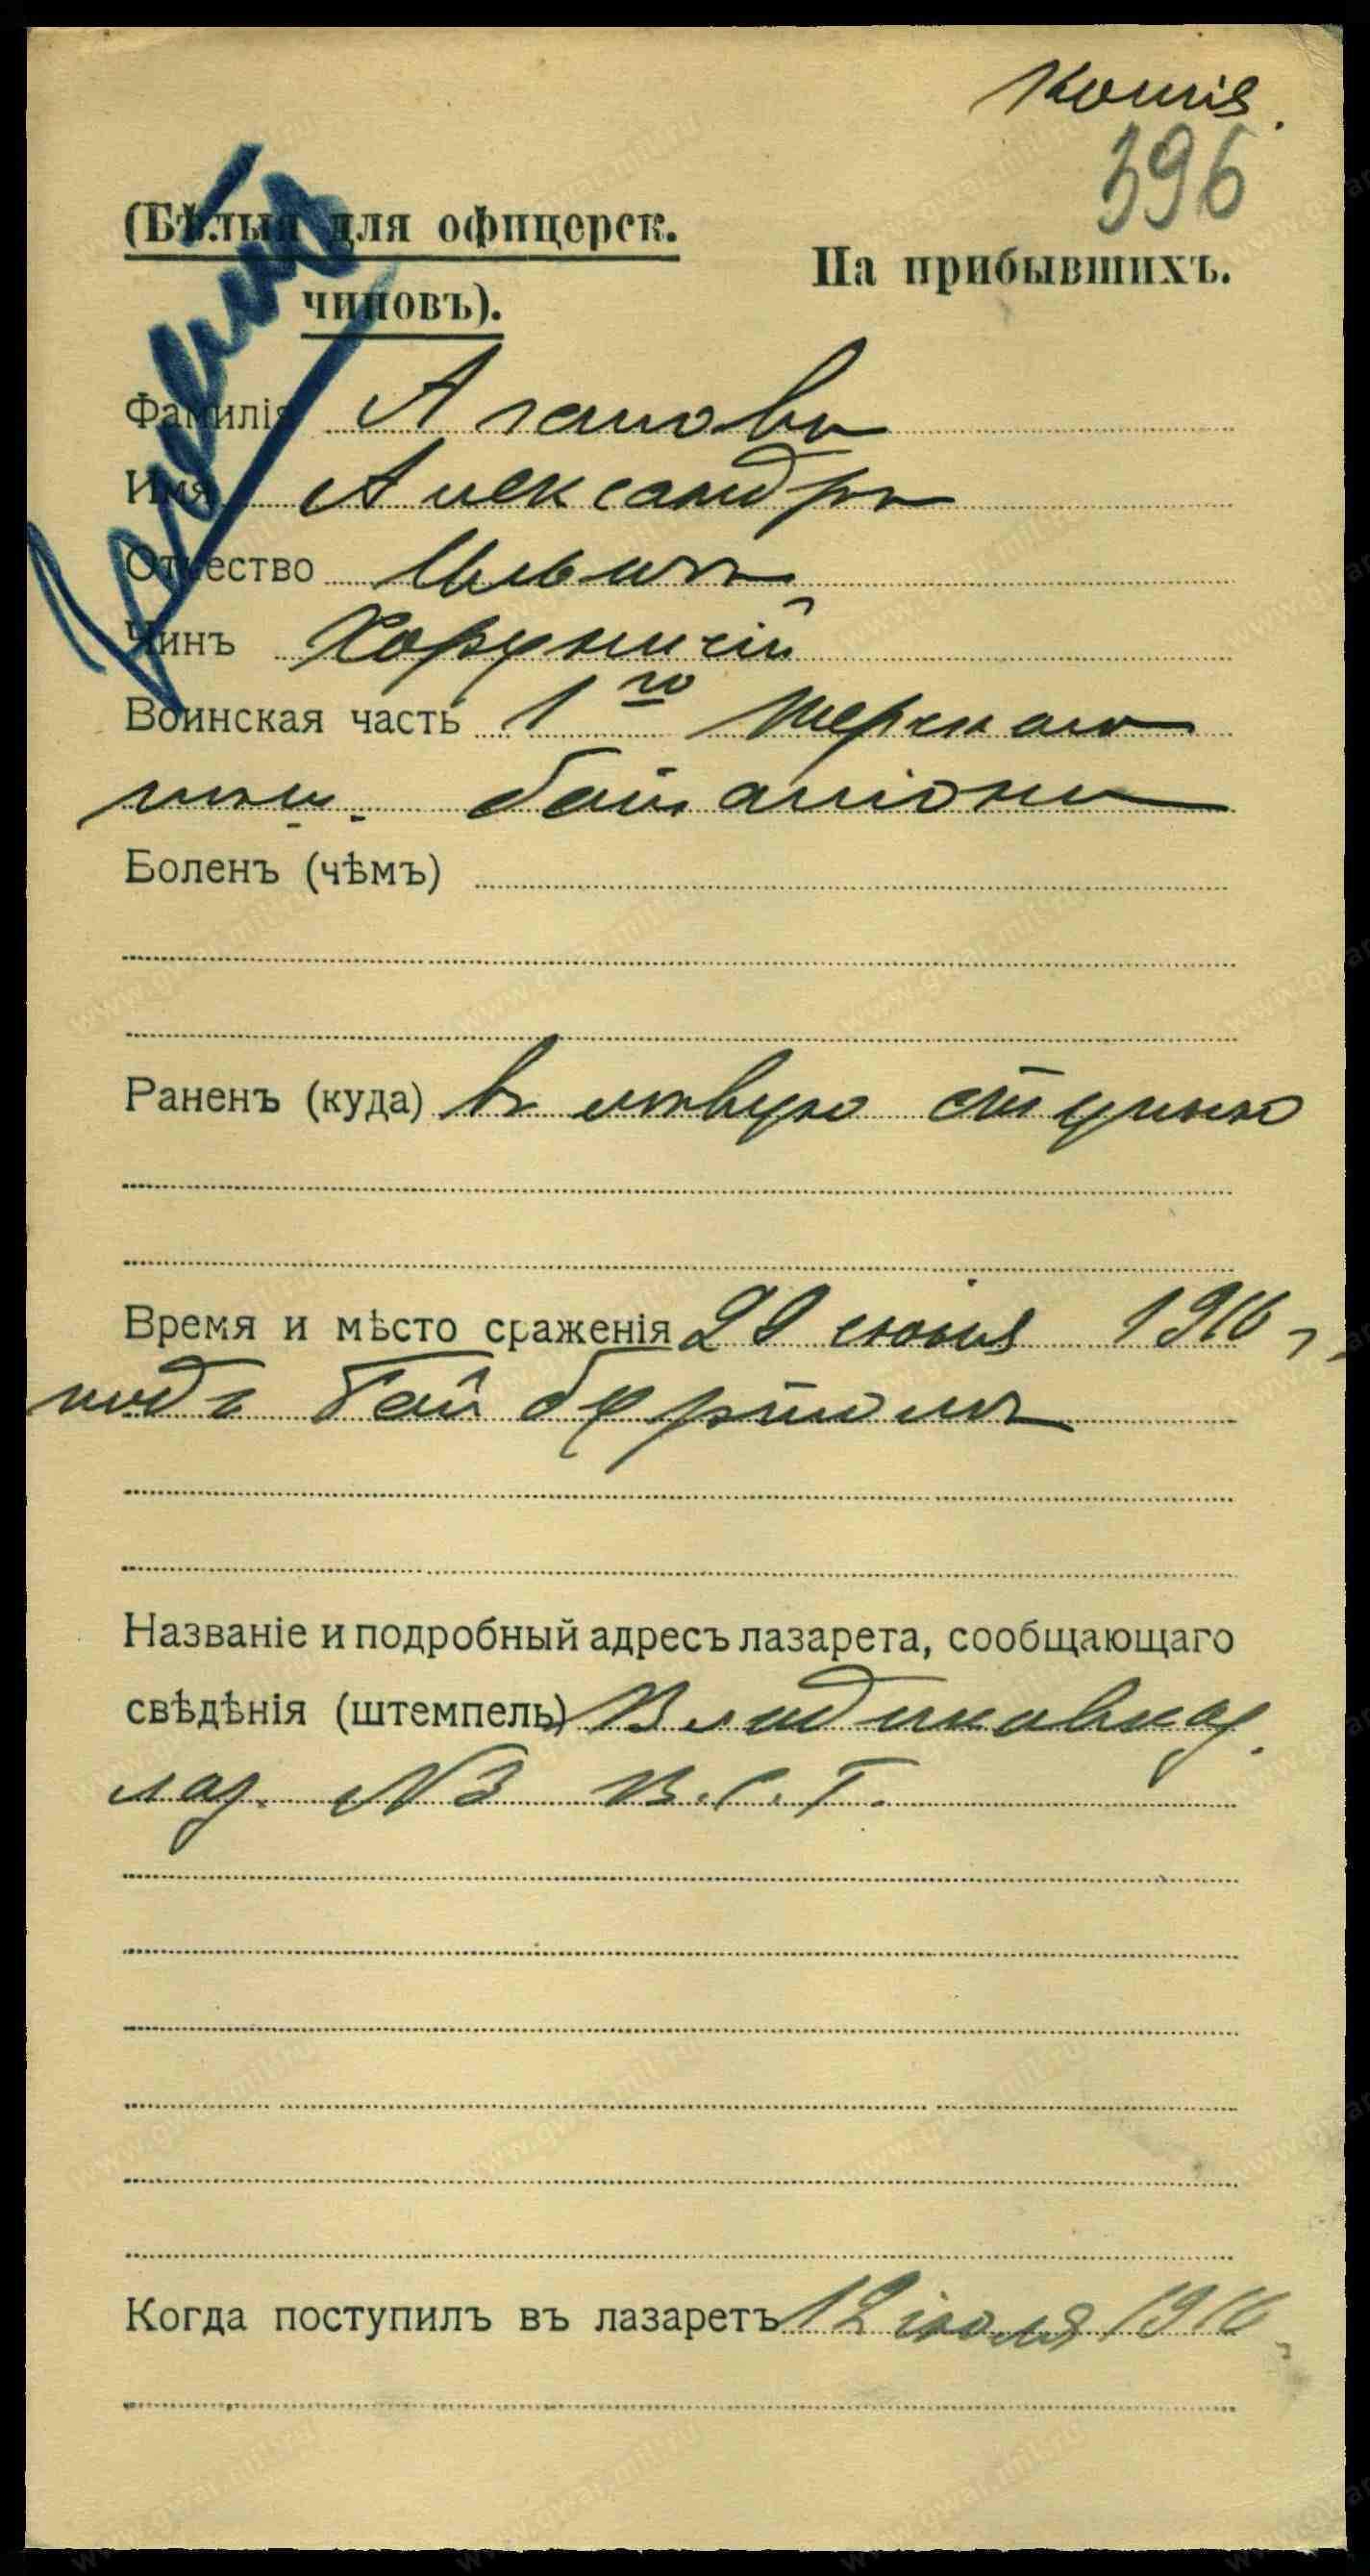 Копія.
396
(Бѣлыя для офицерск.
чиновъ).
На прибывшихъ.
Фамилія Агаповъ
Имя Александръ
Отчество Ильичъ
Чинъ Хорунжій
Воинская часть 1го Терскаго
пл. баталіона
Боленъ (чѣмъ)
Раненъ (куда) въ лѣвую ступню
Время и мѣсто сраженія 29 іюня 1916 г.
подъ Байбуртомъ
Названіе и подробный адресъ лазарета, сообщающаго
свѣдѣнія (штемпель) Владикавказ.
лаз. № 3 В.С.Г.
Когда поступилъ въ лазаретъ 12 іюля 1916